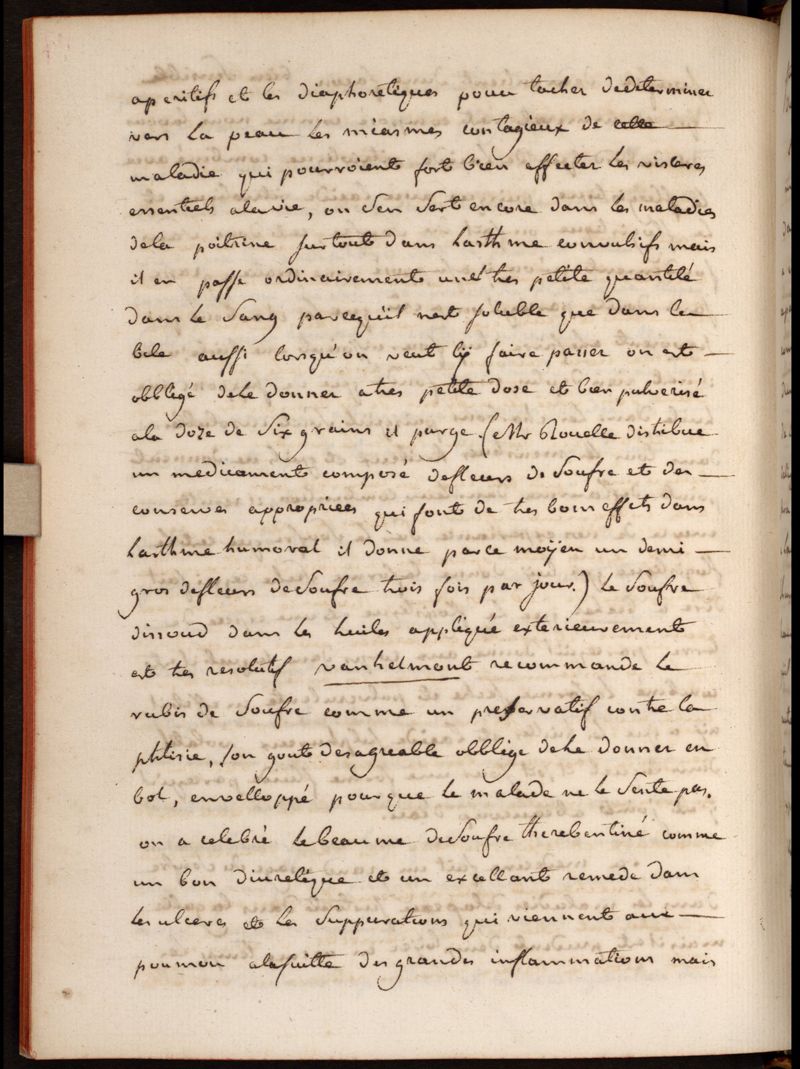 aperitifs et les diaphoretiques pour tacher dedeterminer
vers la peau les miasmes contagieux de cette
maladie qui pourroient fort bien affecter les visceres
essentiels alavie, on sen sert encore dans les maladies
dela poitrine surtout dans lasthme convulsifs mais
il en passe ordinairement une tres petite quantité
dans le sang parcequil nest soluble que dans la
bile aussi lorsqu'on veut ly faire passer on est
obbligé dele donner atres petite dose et bien pulverisé
ala doze de six grains il purge. (Mr Rouelle distibue
un medicament composé defleurs de soufre et des
conserves appropriees qui font de tres bons effets dans
lasthme humoral il donne par ce moÿen un demi
gros defleurs desoufre trois fois par jour.) le soufre
dissoud dans les huiles appliqué exterieurement
est tres resolutif vanhelmont recommande le
rubis de soufre comme un preservatif contre la
phtisie, son gout desagreable obblige dele donner en
bol, envelloppé pour que le malade ne le sente pas.
on a celebré lebeaume desoufre therebentiné comme
un bon diuretique et un excellant remede dans
les ulceres et les suppurations qui viennent aux
poumon alasuitte des grandes inflammations mais